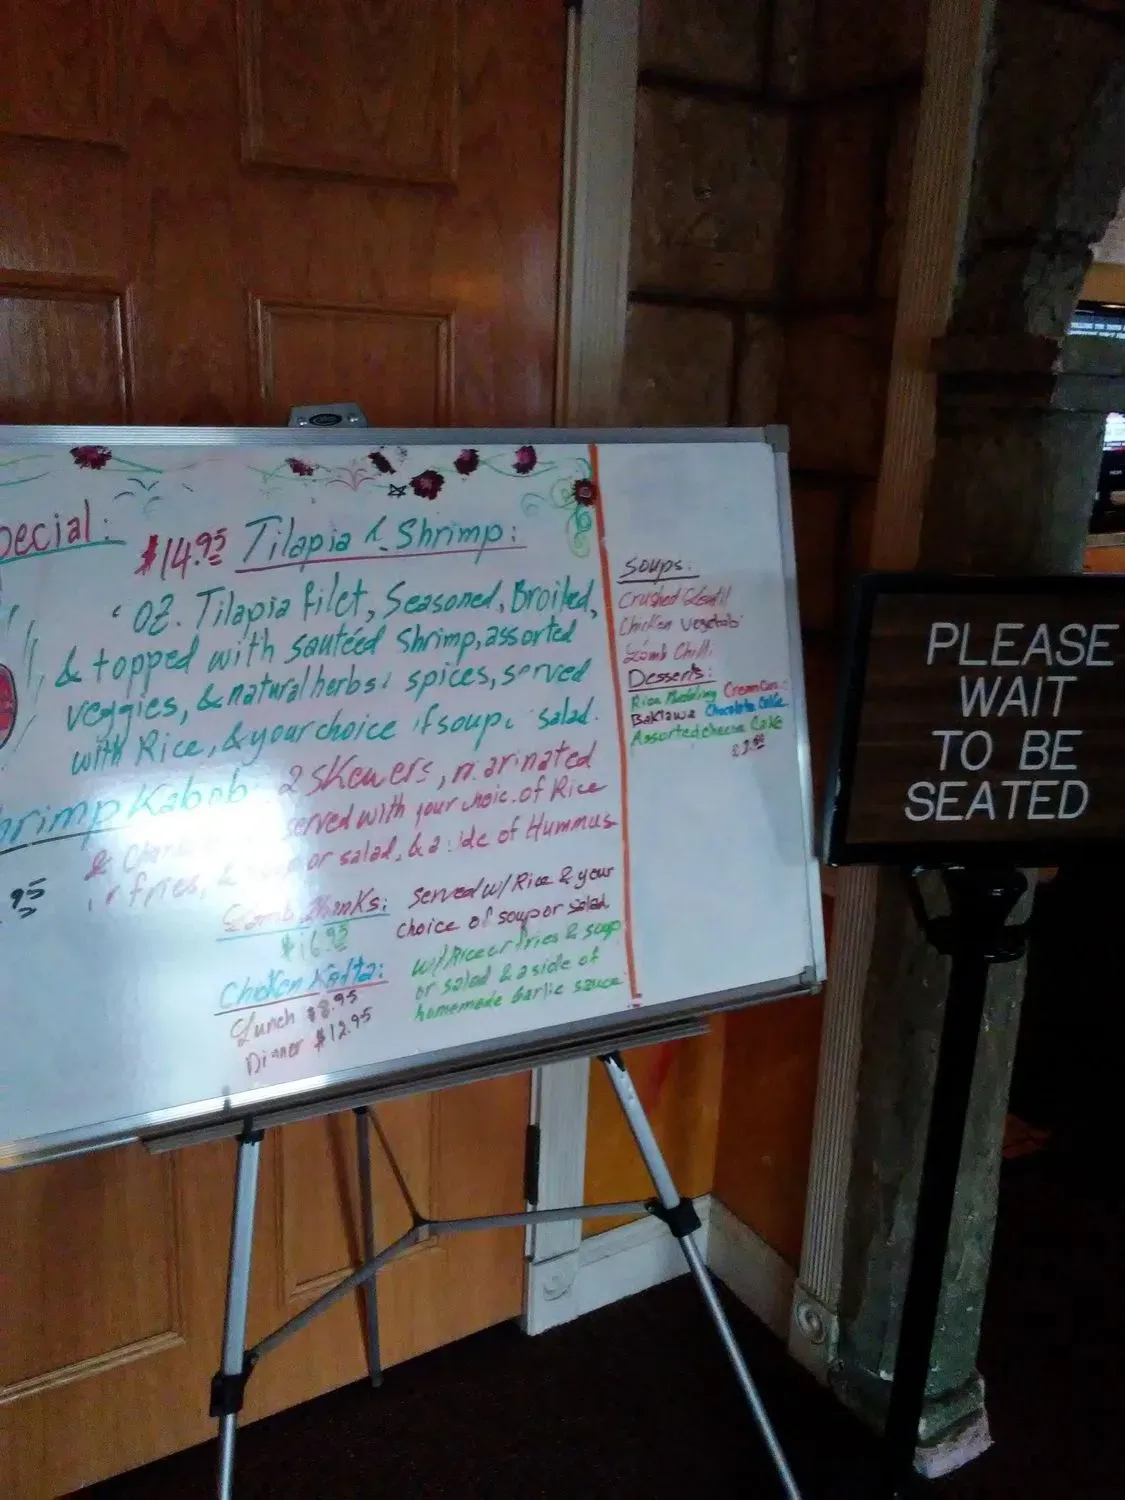 $14.95 Tilapia & Shrimp:
OZ. Tilapia filet, Seasoned, Broiled,
& topped with sautéed shrimp, assorted
veggies, & natural herbs & spices, served
with Rice, & your choice of soup or salad.
Kabob: 2 skewers, marinated
served with your choice of Rice
or fries, & or salad, & a side of Hummus
.95
Lamb Shanks: Served w/ Rice & your
$16.95 choice of soup or salad
Chicken Kafta: w/ Rice or fries & soup
Lunch $8.95 or salad & a side of
Dinner $12.95 homemade Garlic sauce
Soups:
Crushed
Chicken
Lamb Chili
Desserts:
Rice Pudding
Baklawa Chocolate Cake
Assorted Cheese Cake
PLEASE
WAIT
TO BE
SEATED